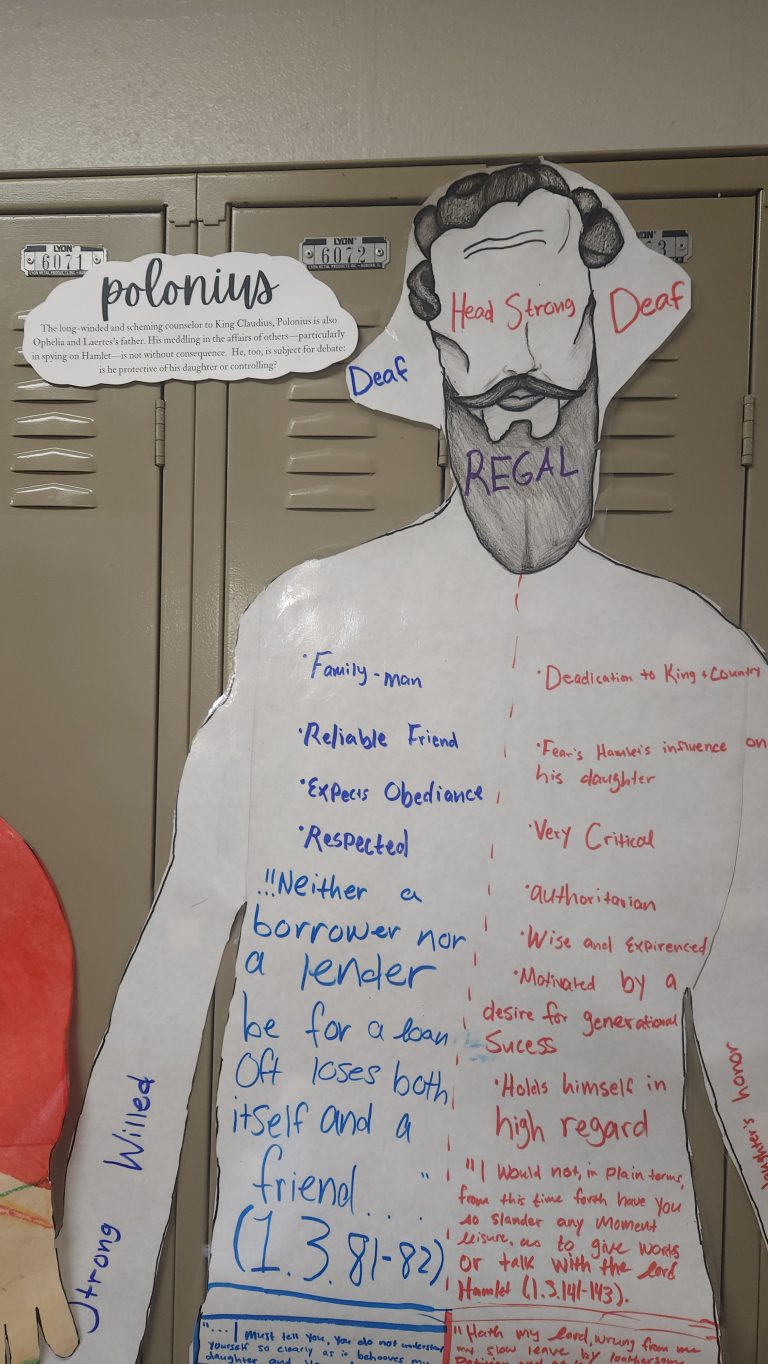 LYON
6071
LYON METAL PRODUCTS INC
LYON
6072
LYON METAL PRODUCTS INC
3
polonius
The long-winded and scheming counselor to King Claudius, Polonius is also
Ophelia and Laertes's father. His meddling in the affairs of others—particularly
in spying on Hamlet—is not without consequence. He, too, is subject for debate:
is he protective of his daughter or controlling?
Head Strong
Deaf
Deaf
REGAL
·Family-man
·Reliable Friend
·Expecs Obediance
·Respected
"Neither a
borrower nor
a lender
be for a loan
Oft loses both
itself and a
friend...."
(1.3.81-82)
"...I must tell you, you do not understand
yourself so clearly as it behooves my
daughter and
·Deadication to King + Country
·Fear's Hamlet's influence on
his daughter
·Very Critical
·authoritarian
·Wise and Expirenced
·Motivated by a
desire for generational
Sucess
·Holds himself in
high regard
"I would not, in plain terms,
from this time forth have you
so slander any moment
leisure, as to give words
or talk with the lord
Hamlet (1.3.141-143).
"Hath my lord, wrung from me
my slow leave by
Strong Willed
daughter's honor